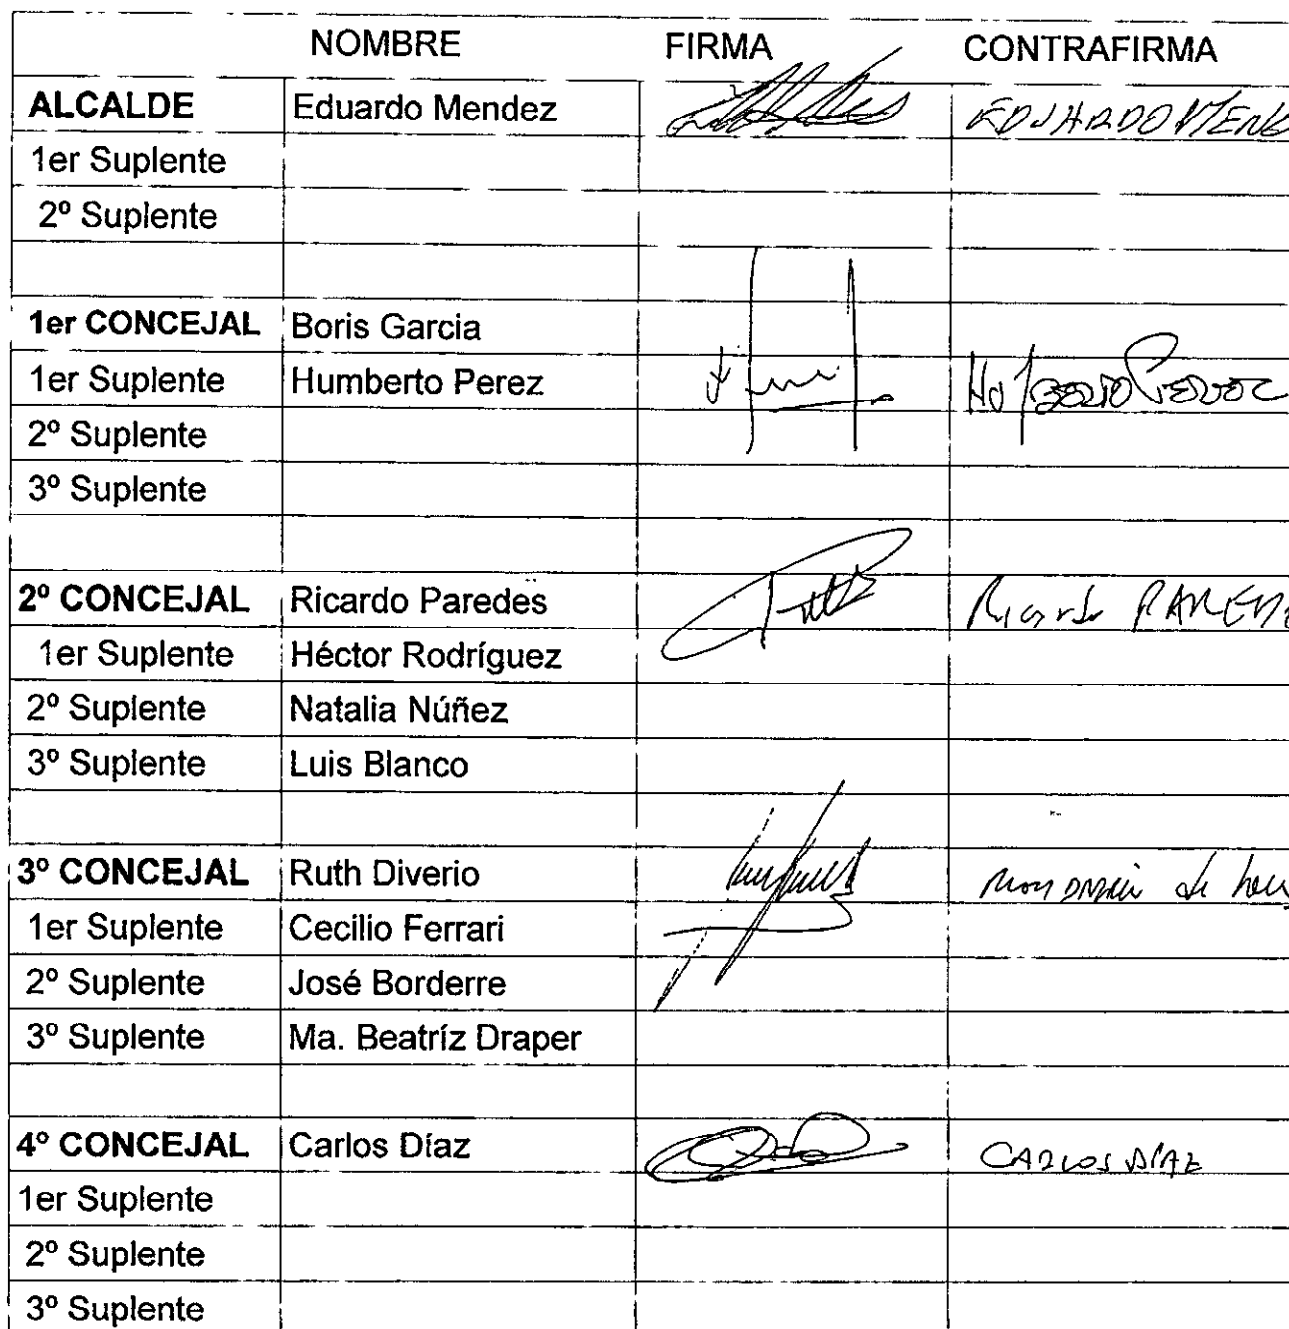 NOMBRE FIRMA CONTRAFIRMA
ALCALDE Eduardo Mendez EDUARDO MENE
1er Suplente
2º Suplente
1er CONCEJAL Boris Garcia
1er Suplente Humberto Perez
2º Suplente
3º Suplente
2º CONCEJAL Ricardo Paredes Ricardo PAREDE
1er Suplente Héctor Rodríguez
2º Suplente Natalia Núñez
3º Suplente Luis Blanco
3º CONCEJAL Ruth Diverio
1er Suplente Cecilio Ferrari
2º Suplente José Borderre
3º Suplente Ma. Beatríz Draper
4º CONCEJAL Carlos Díaz CARLOS DIAZ
1er Suplente
2º Suplente
3º Suplente